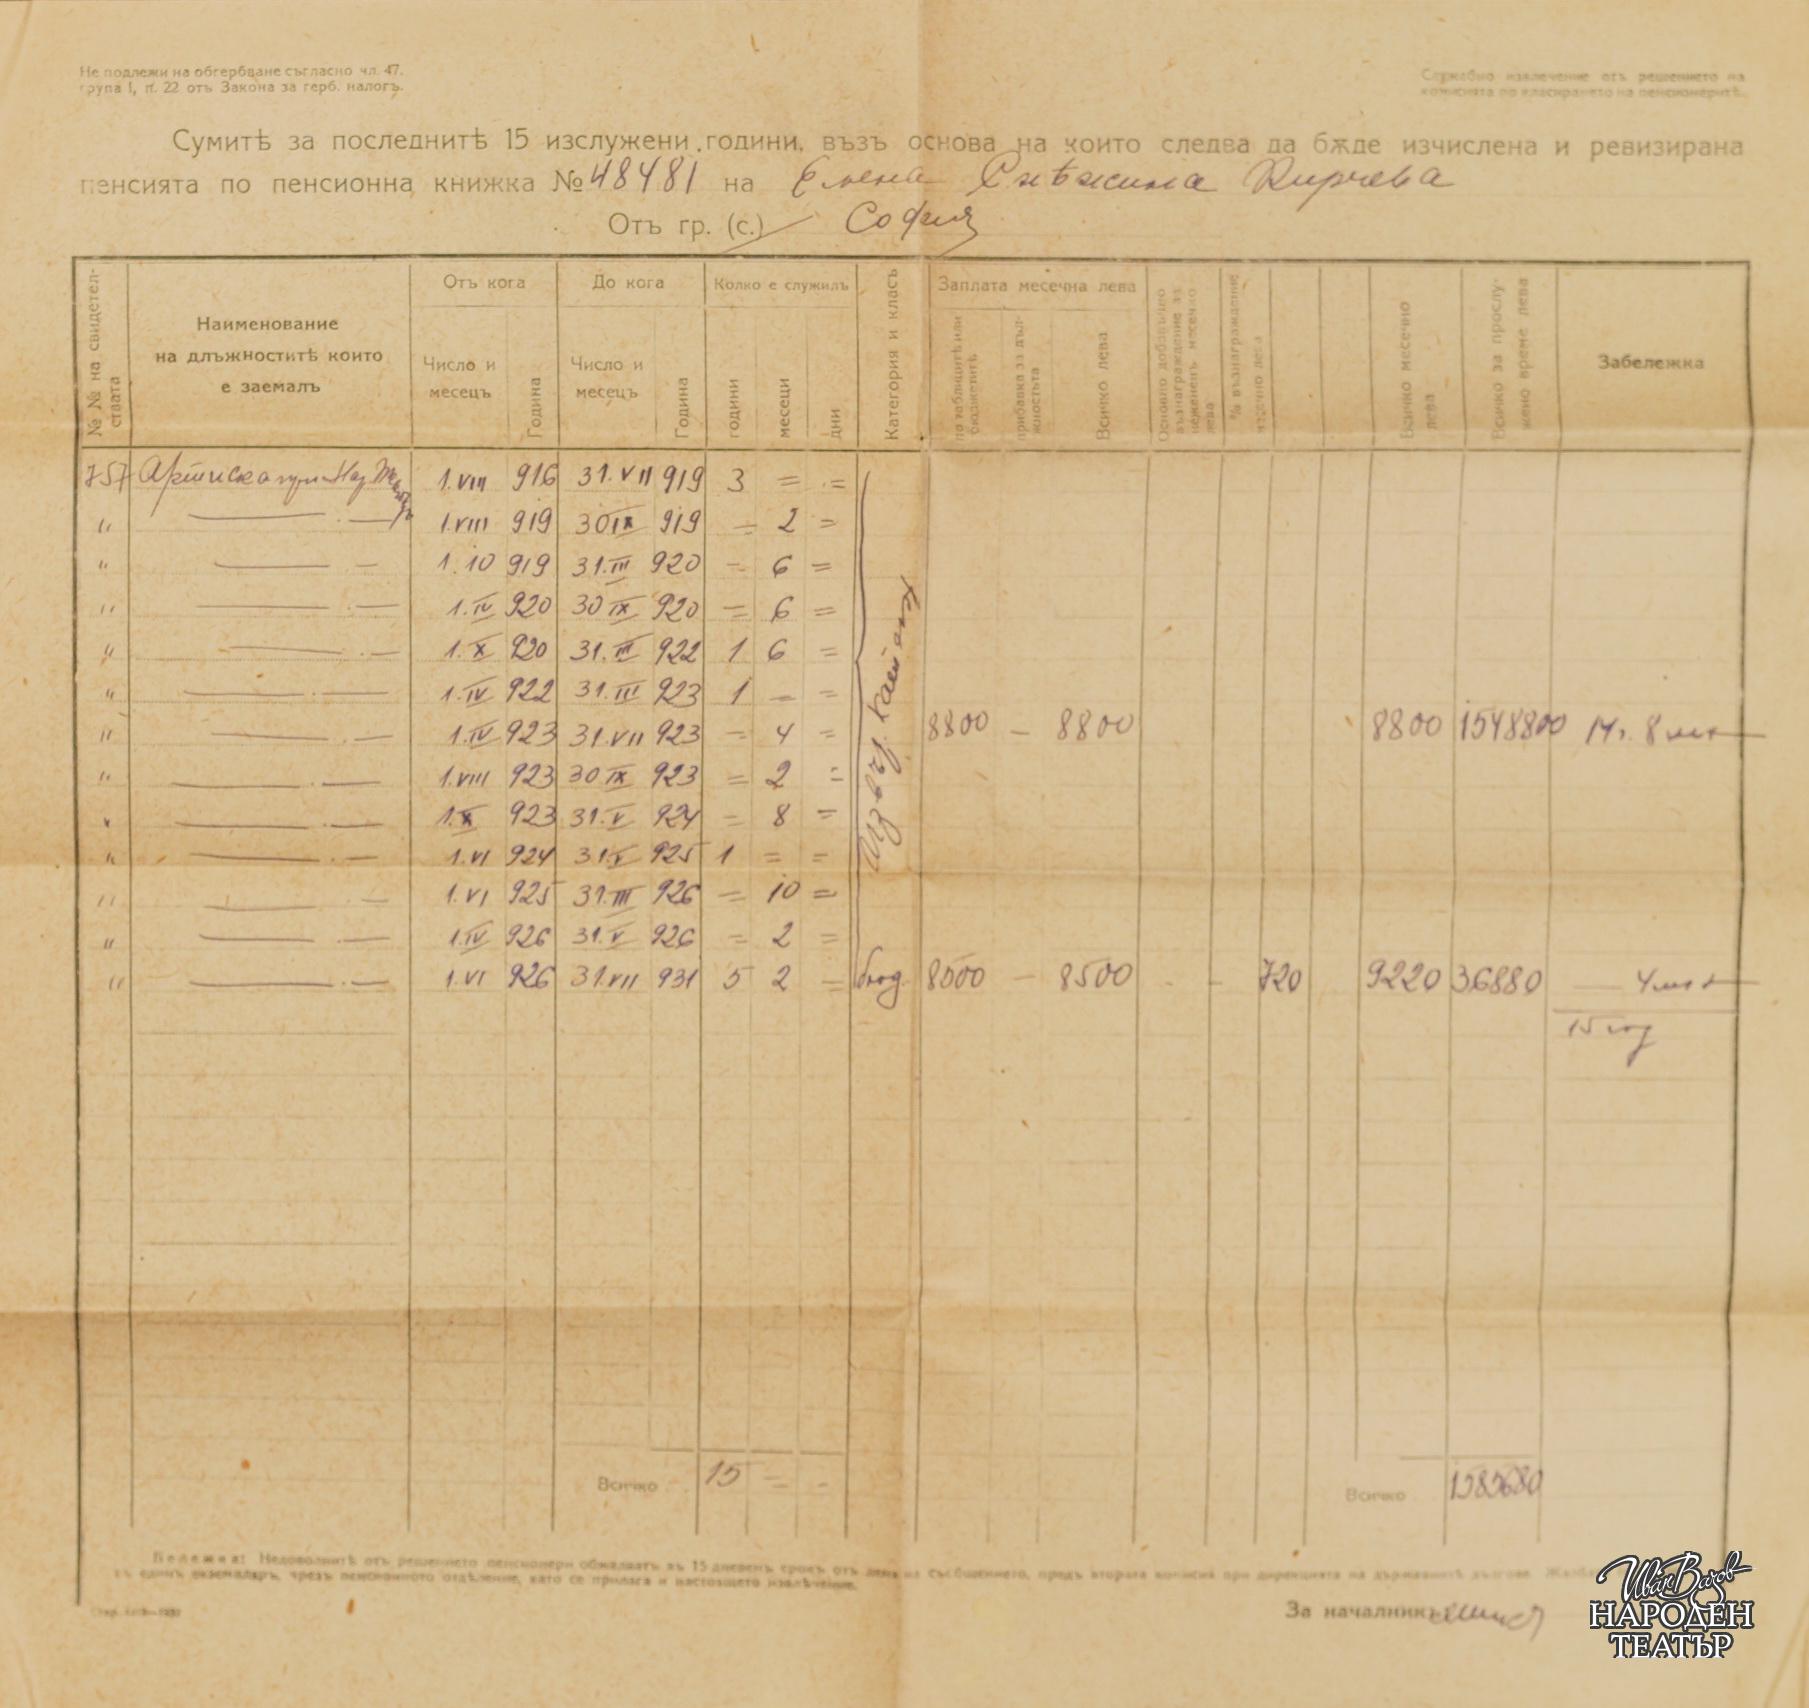 Не подлежи на обгербване съгласно чл. 47.
група I, п. 22 отъ Закона за герб. налогъ.
Служебно извлечение отъ решението на
комисията по класирането на пенсионеритѣ.
Сумитѣ за последнитѣ 15 изслужени години, възъ основа на които следва да бѫде изчислена и ревизирана
пенсията по пенсионна книжка № 48481 на Елена Снѣжина Кирчева
Отъ гр. (с.) София
№ № на свидетел-
ствата
Наименование
на длъжноститѣ които
е заемалъ
Отъ кога
Число и
месецъ
Година
До кога
Число и
месецъ
Година
Колко е служилъ
години
месеци
дни
Категория и класъ
Заплата месечна лева
по таблицитѣ или
бюджетитѣ
прибавка за длъ-
жностьта
Всичко лева
Основно добавъчно
възнаграждение за
неженень месечно
лева
% възнаграждение
месечно лева
Всичко месечно
лева
Всичко за прослу-
жено време лева
Забележка
757 Артиска при Нар. Театъръ 1.VIII 916 31.VII 919 3 = =
" — . — 1.VIII 919 30 IX 919 — 2 =
" — — 1.10 919 31.III 920 = 6 =
" — . — 1.IV 920 30 IX 920 = 6 =
" — . — 1.X 920 31.III 922 1 6 =
" — . — 1.IV 922 31.III 923 1 — =
" — . — 1.IV 923 31.VII 923 = 4 = 8800 — 8800 8800 1548800 14 г. 8 м.
" — . — 1.VIII 923 30 IX 923 = 2 =
" — . — 1.X 923 31.V 924 = 8 =
" — . — 1.VI 924 31.V 925 1 = =
" — . — 1.VI 925 31.III 926 = 10 =
" — . — 1.IV 926 31.V 926 = 2 =
" — . — 1.VI 926 31.VII 931 5 2 = бюд. 8500 — 8500 - - 720 9220 36880 — 4 м.
Извън. кат.
15 год
Всичко 15 = -
Всичко 1585680
Бележка: Недоволнитѣ отъ решението пенсионери обжалватъ въ 15 дневенъ срокъ отъ деня на съобщението, предъ втората комисия при дирекцията на държавнитѣ дългове.
въ единъ екземпляръ, чрезъ пенсионното отдѣление, като се прилага и настоящето извлѣчение.
За началникъ:
Иван Вазов
НАРОДЕН
ТЕАТЪР